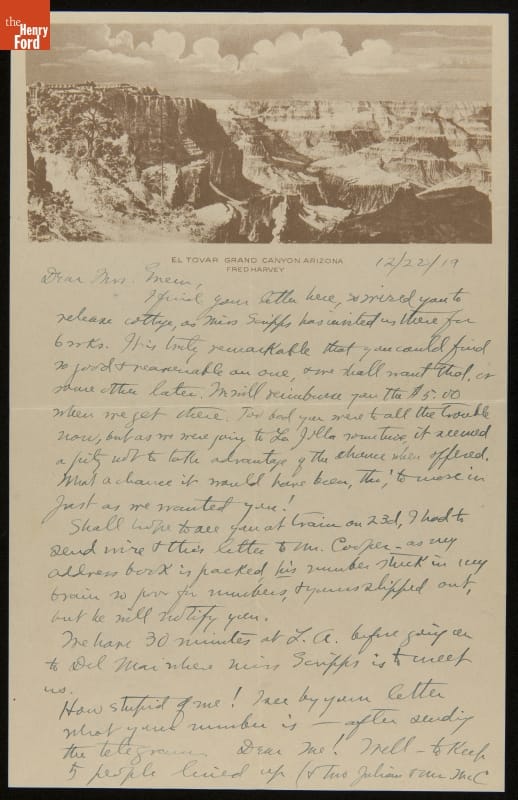 the
Henry
Ford
EL TOVAR GRAND CANYON ARIZONA
FRED HARVEY
12/22/19
Dear Mrs.
I find your letter here, so wired you to
release cottage, as Miss Scripps has invited us there for
6 wks. It is truly remarkable that you could find
so good & reasonable an one, & we shall want that, or
some other later. I will reimburse you the $5.00
when we get there. Too bad you were to all the trouble
now, but as we were going to La Jolla sometime, it seemed
a pity not to take advantage of the chance when offered.
What a chance it would have been, tho', to move in
just as we wanted you!
Shall hope to see you at train on 23d, I had to
send wire & this letter to Mr. Cooper - as my
address book is packed, his number stuck in my
brain so poor for numbers, & yours slipped out,
but he will notify you.
We have 30 minutes at L.A. before going on
to Del Mar where Miss Scripps is to meet
us.
How stupid of me! I see by your letter
what your number is - after sending
the telegram. Dear Me! Well - to keep
5 people lined up (& two Julian & Mr. McC